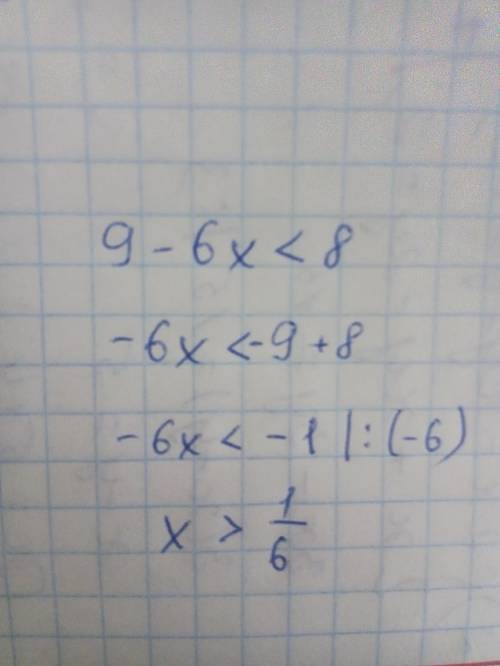 9 - 6x < 8
-6x < -9 + 8
-6x < -1 | : (-6)
x > 1/6